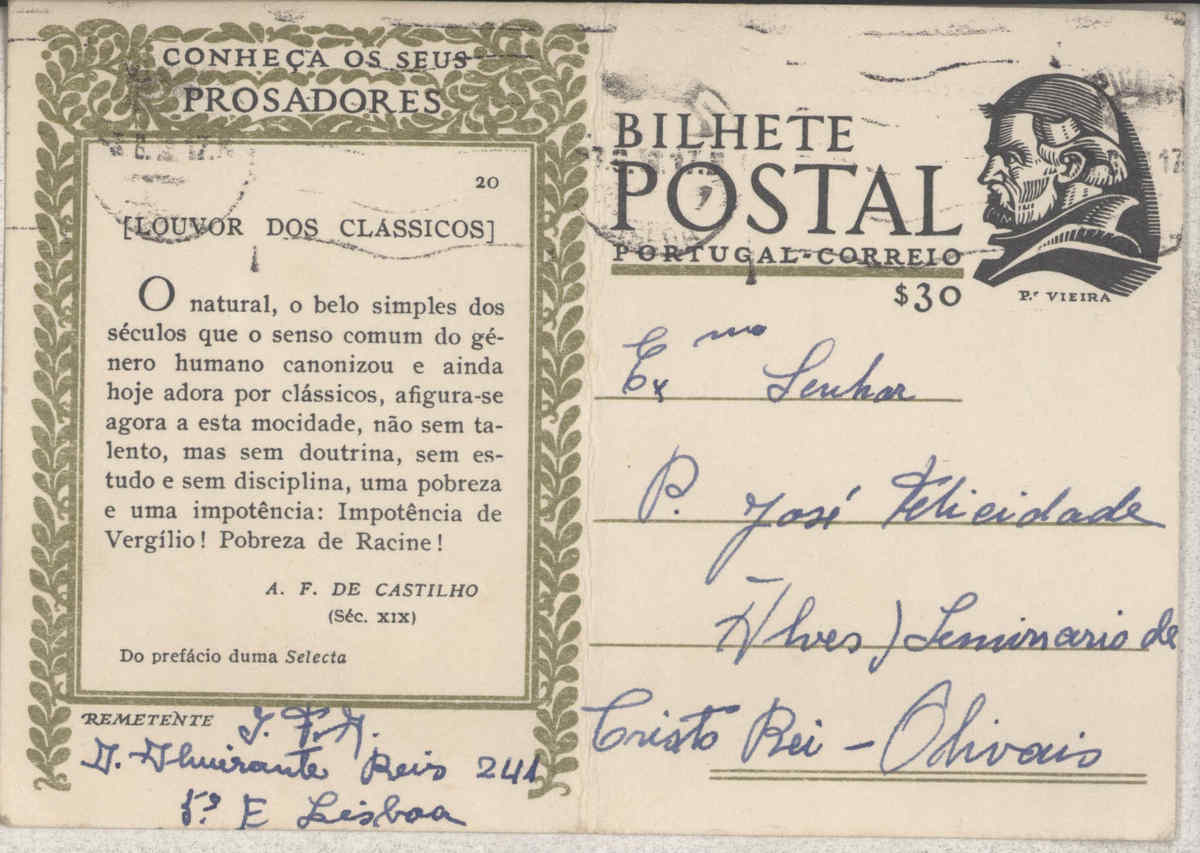 CONHEÇA OS SEUS
PROSADORES
20
[LOUVOR DOS CLÁSSICOS]
O natural, o belo simples dos
séculos que o senso comum do gé-
nero humano canonizou e ainda
hoje adora por clássicos, afigura-se
agora a esta mocidade, não sem ta-
lento, mas sem doutrina, sem es-
tudo e sem disciplina, uma pobreza
e uma impotência: Impotência de
Vergílio! Pobreza de Racine!
A. F. DE CASTILHO
(Séc. XIX)
Do prefácio duma Selecta
REMETENTE
Almirante Reis 241
5.º E Lisboa
BILHETE
POSTAL
PORTUGAL-CORREIO
$30
P.e VIEIRA
Exmo Senhor
P. José Felicidade
Alves) Seminario de
Cristo Rei - Olivais